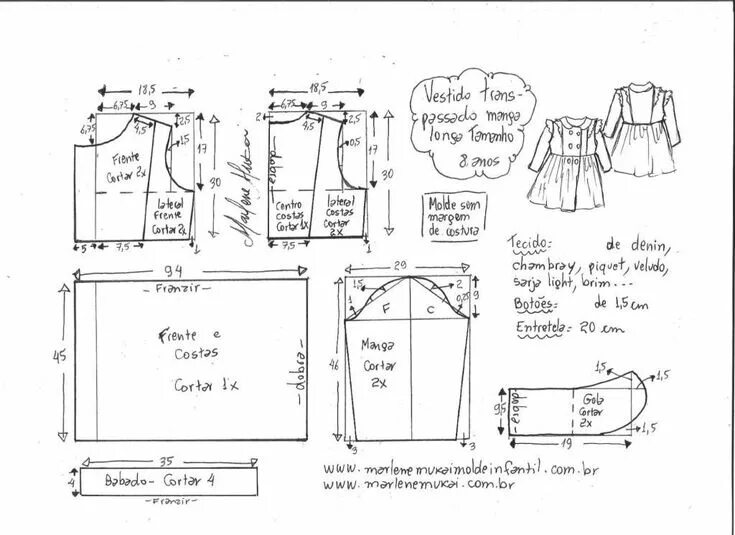 18,5
6,75
9
6,75
4,5
2,5
1,5
17
30
Frente
Cortar 2x
lateral
Frente
Cortar 2x
5
7,5
1
Marlene Mukai
18,5
6,75
9
2
4,5
2,5
0,5
17
30
dobra
Centro
costas
Cortar 1x
lateral
Costas
Cortar
2x
7,5
1
Vestido Trans-
passado manga
longa Tamanho
8 anos
Molde sem
margem
de costura
Tecido: de denin,
chambray, piquet, veludo,
sarja light, brim...
Botões: de 1,5 cm
Entretela: 20 cm
94
- Franzir -
45
Frente e
Costas
Cortar 1x
- dobra -
29
1,5
2
1
0,25
9
F
C
46
Manga
Cortar
2x
3
3
1,5
1,5
9,5
dobra
Gola
Cortar
2x
1,5
19
35
4
Babado - Cortar 4
- Franzir -
www.marlenemukaimoldeinfantil.com.br
www.marlenemukai.com.br